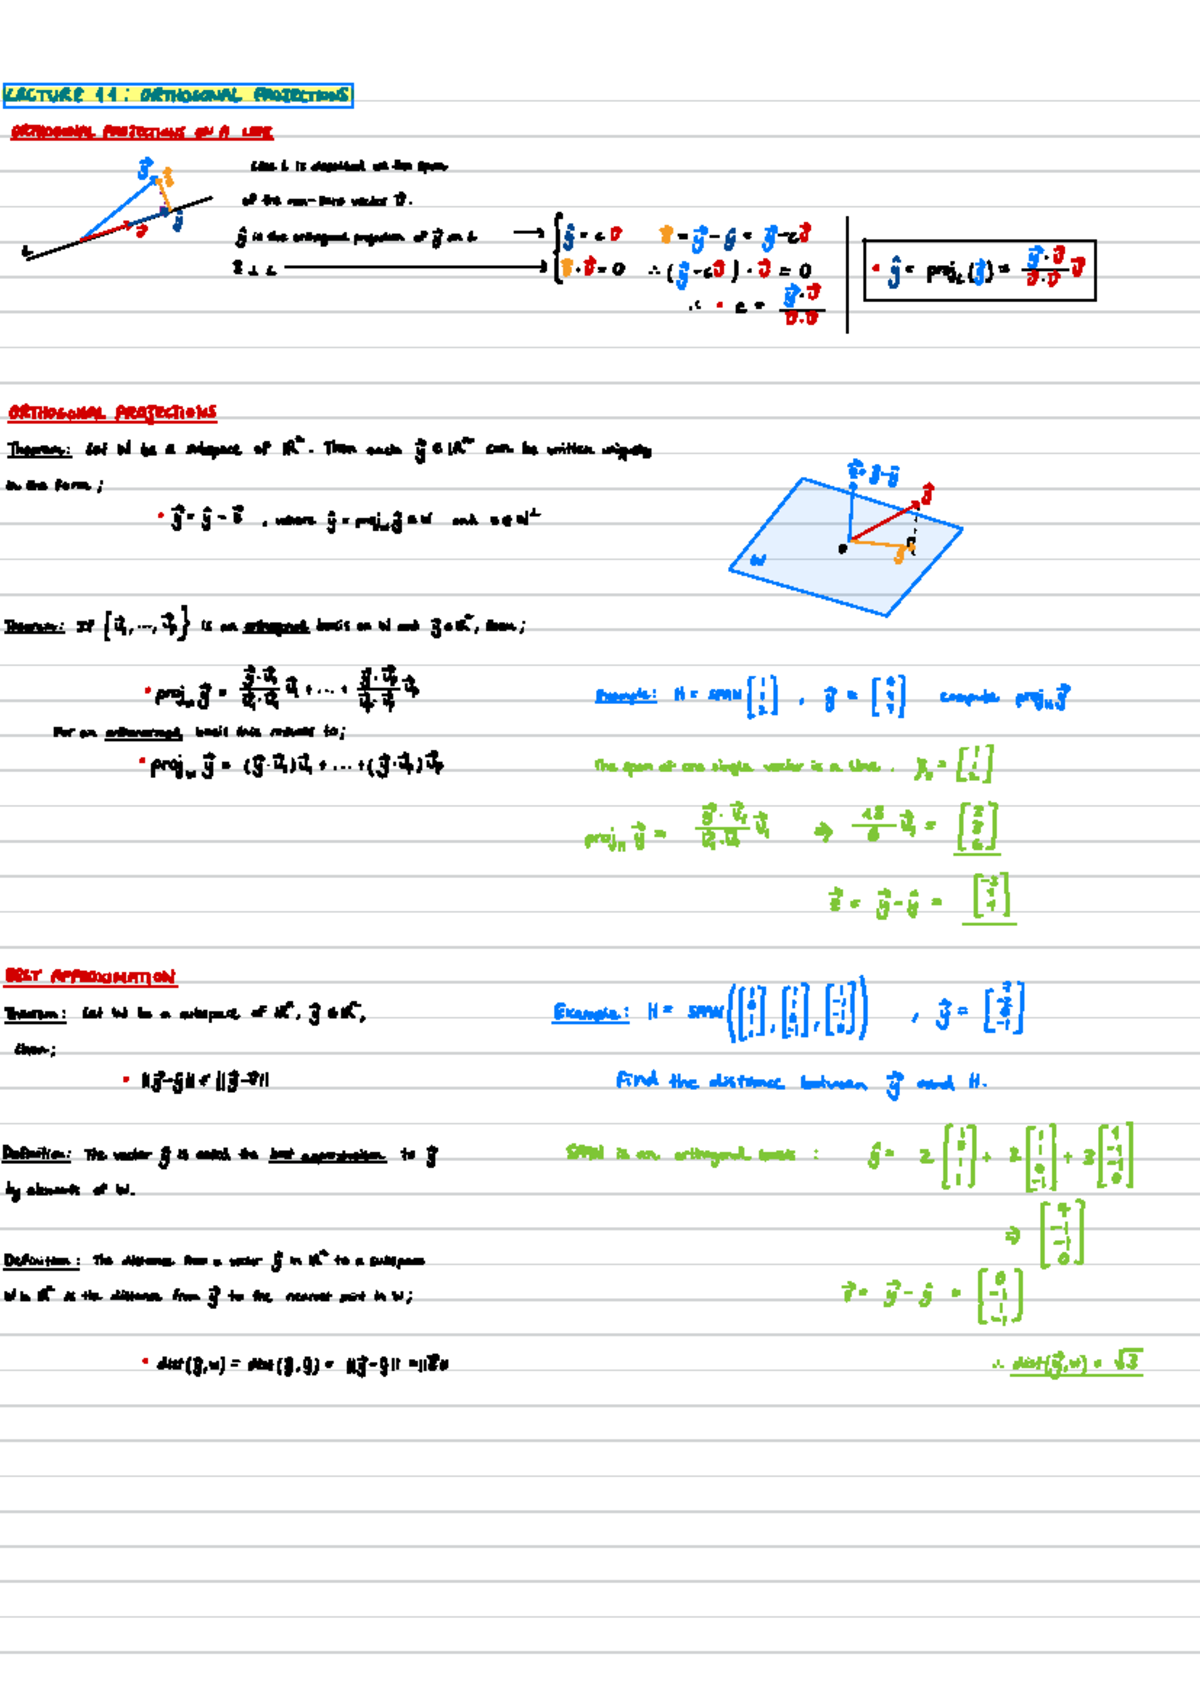 LECTURE 11: ORTHOGONAL PROJECTIONS
ORTHOGONAL PROJECTIONS ON A LINE
Line L is described as the span
of the non-zero vector v⃗.
ŷ is the orthogonal projection of y⃗ on L → ŷ = c v⃗
z⃗ ⊥ L → z⃗ · v⃗ = 0
z⃗ = y⃗ - ŷ = y⃗ - c v⃗
∴ (y⃗ - c v⃗) · v⃗ = 0
∴ • c = (y⃗ · v⃗)/(v⃗ · v⃗)
• ŷ = proj_L(y⃗) = (y⃗ · v⃗)/(v⃗ · v⃗) v⃗
ORTHOGONAL PROJECTIONS
Theorem: Let W be a subspace of ℝⁿ. Then each y⃗ ∈ ℝⁿ can be written uniquely
in the form;
• y⃗ = ŷ - z⃗ , where ŷ = proj_W y⃗ ∈ W and z ∈ W⊥
z⃗ = y⃗ - ŷ
y⃗
W
Theorem: If {u⃗₁, ..., u⃗p} is an orthogonal basis on W and y⃗ ∈ ℝⁿ, then;
• proj_W y⃗ = (y⃗ · u⃗₁)/(u⃗₁ · u⃗₁) u⃗₁ + ... + (y⃗ · u⃗p)/(u⃗p · u⃗p) u⃗p
For an orthonormal basis this reduces to;
• proj_W y⃗ = (y⃗ · u⃗₁)u⃗₁ + ... + (y⃗ · u⃗p)u⃗p
Example: H = SPAN [1 1 2] , y⃗ = compute proj_H y⃗
The span of one single vector is a line.
proj_H y⃗ = (y⃗ · u⃗₁)/(u⃗₁ · u⃗₁) u⃗₁ ⇒ 18/6 u⃗₁ =
z⃗ = y⃗ - ŷ =
BEST APPROXIMATION
Theorem: Let W be a subspace of ℝⁿ, y⃗ ∈ ℝⁿ,
then;
• ||y⃗ - ŷ|| < ||y⃗ - v⃗||
Definition: The vector ŷ is called the best approximation to y⃗
by elements of W.
Definition: The distance from a vector y⃗ in ℝⁿ to a subspace
W in ℝⁿ is the distance from y⃗ to the nearest point in W;
• dist(y⃗, W) = dist(y⃗, ŷ) = ||y⃗ - ŷ|| = ||z⃗||
Example: H = SPAN , y⃗ =
Find the distance between y⃗ and H.
SPAN is an orthogonal basis :
z⃗ = y⃗ - ŷ =
∴ dist(y⃗, W) = √3